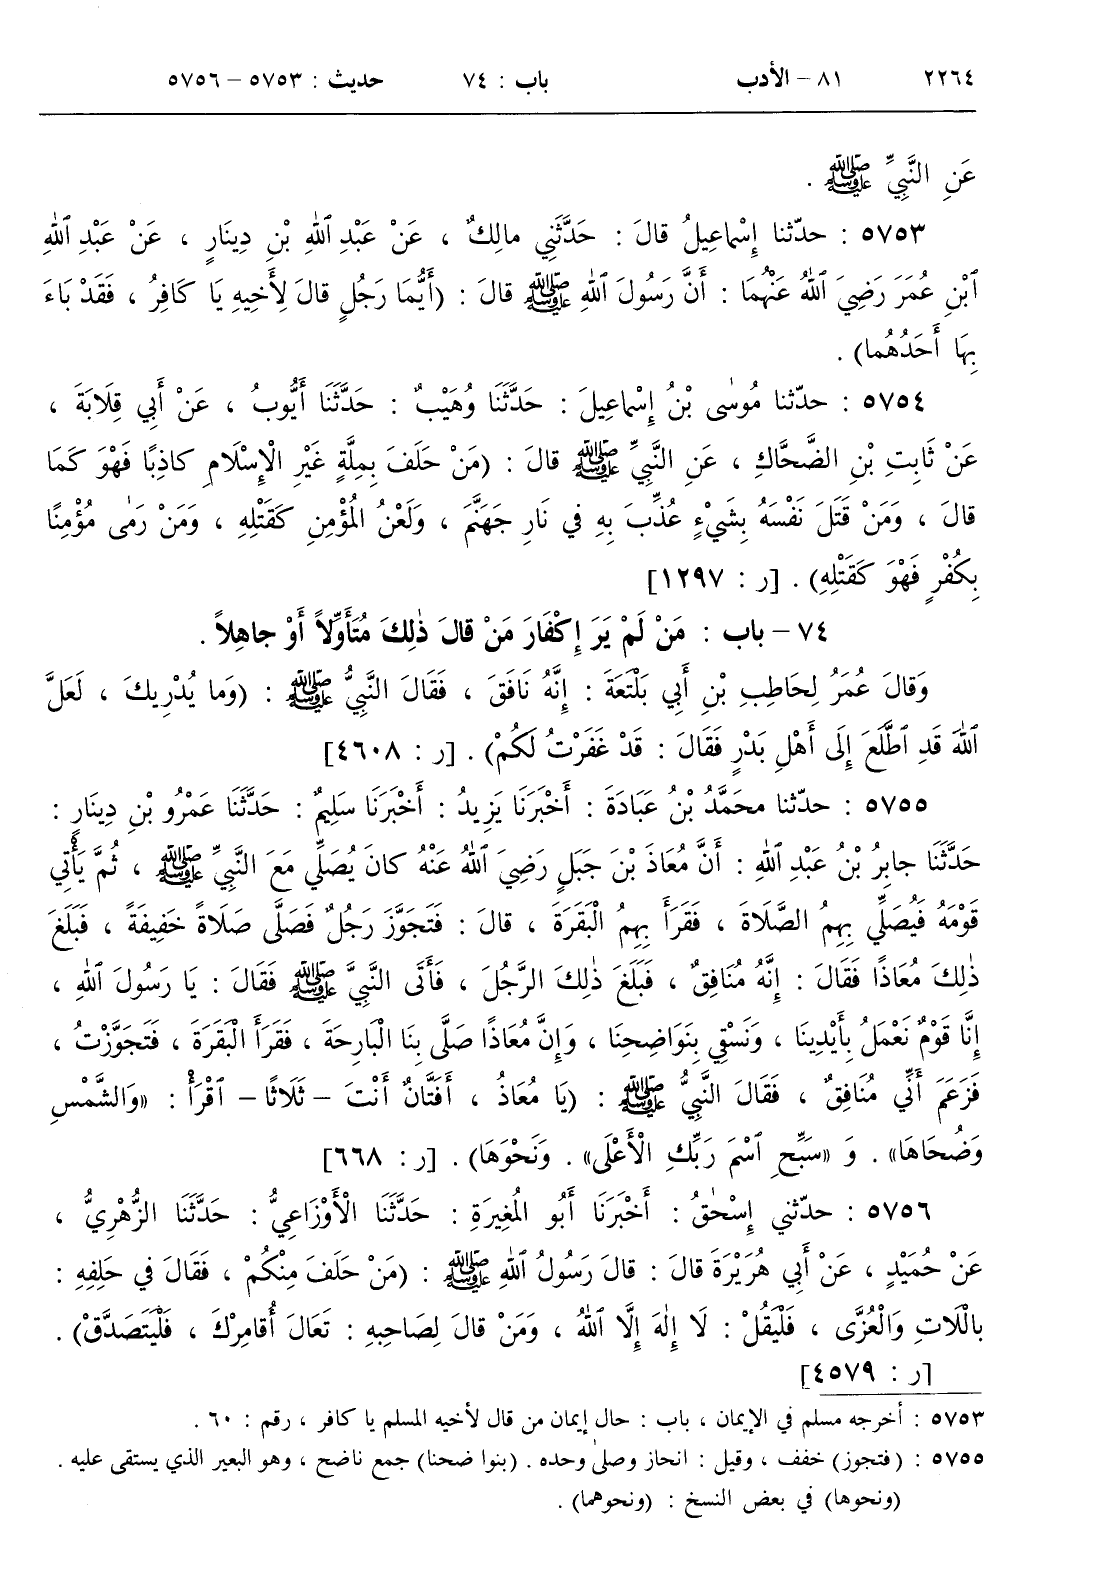 ٢٢٦٤ ٨١ – الأدب باب : ٧٤ حديث : ٥٧٥٣ – ٥٧٥٦
عَنِ النَّبِيِّ ﷺ .
٥٧٥٣ : حدّثنا إِسْماعِيلُ قالَ : حَدَّثَنِي مالِكٌ ، عَنْ عَبْدِ ٱللهِ بْنِ دِينَارٍ ، عَنْ عَبْدِ ٱللهِ
ٱبْنِ عُمَرَ رَضِيَ ٱللهُ عَنْهُمَا : أَنَّ رَسُولَ ٱللهِ ﷺ قالَ : (أَيُّمَا رَجُلٍ قالَ لِأَخِيهِ يَا كَافِرُ ، فَقَدْ بَاءَ
بِهَا أَحَدُهُما) .
٥٧٥٤ : حدّثنا مُوسٰى بْنُ إِسْماعِيلَ : حَدَّثَنَا وُهَيْبٌ : حَدَّثَنَا أَيُّوبُ ، عَنْ أَبِي قِلَابَةَ ،
عَنْ ثَابِتِ بْنِ الضَّحَّاكِ ، عَنِ النَّبِيِّ ﷺ قالَ : (مَنْ حَلَفَ بِمِلَّةٍ غَيْرِ الْإِسْلَامِ كاذِبًا فَهْوَ كَمَا
قالَ ، وَمَنْ قَتَلَ نَفْسَهُ بِشَيْءٍ عُذِّبَ بِهِ في نَارِ جَهَنَّمَ ، وَلَعْنُ الْمُؤْمِنِ كَقَتْلِهِ ، وَمَنْ رَمٰى مُؤْمِنًا
بِكُفْرٍ فَهْوَ كَقَتْلِهِ) . [ر : ١٢٩٧]
٧٤ – باب : مَنْ لَمْ يَرَ إِكْفَارَ مَنْ قالَ ذٰلِكَ مُتَأَوِّلاً أَوْ جاهِلاً .
وَقالَ عُمَرُ لِحَاطِبِ بْنِ أَبِي بَلْتَعَةَ : إِنَّهُ نَافَقَ ، فَقَالَ النَّبِيُّ ﷺ : (وَما يُدْرِيكَ ، لَعَلَّ
ٱللهَ قَدِ ٱطَّلَعَ إِلَى أَهْلِ بَدْرٍ فَقَالَ : قَدْ غَفَرْتُ لَكُمْ) . [ر : ٤٦٠٨]
٥٧٥٥ : حدّثنا محَمَّدُ بْنُ عَبَادَةَ : أَخْبَرَنَا يَزِيدُ : أَخْبَرَنَا سَلِيمٌ : حَدَّثَنَا عَمْرُو بْنِ دِينَارٍ :
حَدَّثَنَا جابِرُ بْنُ عَبْدِ ٱللهِ : أَنَّ مُعَاذَ بْنَ جَبَلٍ رَضِيَ ٱللهُ عَنْهُ كانَ يُصَلِّي مَعَ النَّبِيِّ ﷺ ، ثُمَّ يَأْتِي
قَوْمَهُ فَيُصَلِّي بِهِمُ الصَّلَاةَ ، فَقَرَأَ بِهِمُ الْبَقَرَةَ ، قالَ : فَتَجَوَّزَ رَجُلٌ فَصَلَّى صَلَاةً خَفِيفَةً ، فَبَلَغَ
ذٰلِكَ مُعَاذًا فَقَالَ : إِنَّهُ مُنَافِقٌ ، فَبَلَغَ ذٰلِكَ الرَّجُلَ ، فَأَتَى النَّبِيَّ ﷺ فَقَالَ : يَا رَسُولَ ٱللهِ ،
إِنَّا قَوْمٌ نَعْمَلُ بِأَيْدِينَا ، وَنَسْقِي بِنَوَاضِحِنَا ، وَإِنَّ مُعَاذًا صَلَّى بِنَا الْبَارِحَةَ ، فَقَرَأَ الْبَقَرَةَ ، فَتَجَوَّزْتُ ،
فَزَعَمَ أَنِّي مُنَافِقٌ ، فَقَالَ النَّبِيُّ ﷺ : (يَا مُعَاذُ ، أَفَتَّانٌ أَنْتَ – ثَلَاثًا – ٱقْرَأْ : «وَالشَّمْسِ
وَضُحَاهَا» . وَ «سَبِّحِ ٱسْمَ رَبِّكَ الْأَعْلَى» . وَنَحْوَهَا) . [ر : ٦٦٨]
٥٧٥٦ : حدّثني إِسْحٰقُ : أَخْبَرَنَا أَبُو الْمُغِيرَةِ : حَدَّثَنَا الْأَوْزَاعِيُّ : حَدَّثَنَا الزُّهْرِيُّ ،
عَنْ حُمَيْدٍ ، عَنْ أَبِي هُرَيْرَةَ قالَ : قالَ رَسُولُ ٱللهِ ﷺ : (مَنْ حَلَفَ مِنْكُمْ ، فَقَالَ في حَلِفِهِ :
بِاللَّاتِ وَالْعُزَّى ، فَلْيَقُلْ : لَا إِلٰهَ إِلَّا ٱللهُ ، وَمَنْ قالَ لِصَاحِبِهِ : تَعَالَ أُقامِرْكَ ، فَلْيَتَصَدَّقْ) .
[ر : ٤٥٧٩]
٥٧٥٣ : أخرجه مسلم في الإيمان ، باب : حال إيمان من قال لأخيه المسلم يا كافر ، رقم : ٦٠ .
٥٧٥٥ : (فتجوز) خفف ، وقيل : انحاز وصلى وحده . (بنوا ضحنا) جمع ناضح ، وهو البعير الذي يستقى عليه .
(ونحوها) في بعض النسخ : (ونحوهما) .